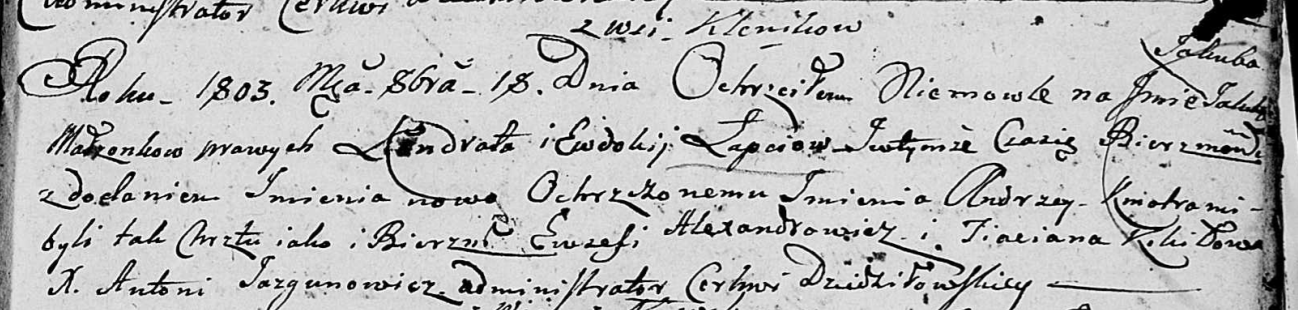 Administrator Cerkwi
z wsi Klenikow
Jakuba
Roku 1803. Mca 8bra 18. Dnia Ochrzciłem Niemowle na Jmie Jakub
Małżonkow prawych Kondrata i Ewdokij Łapciow w tymże Czasie Bierzmow
z dodaniem Jmienia nowo Ochrzczonemu Jmienia Andrzey. Kmotrami
byli tak Chrztu iako i Bierzm Ewzefi Alexandrowicz i Taciana
X. Antoni Jazgunowicz administrator Cerkwi Dziedziłowskiey